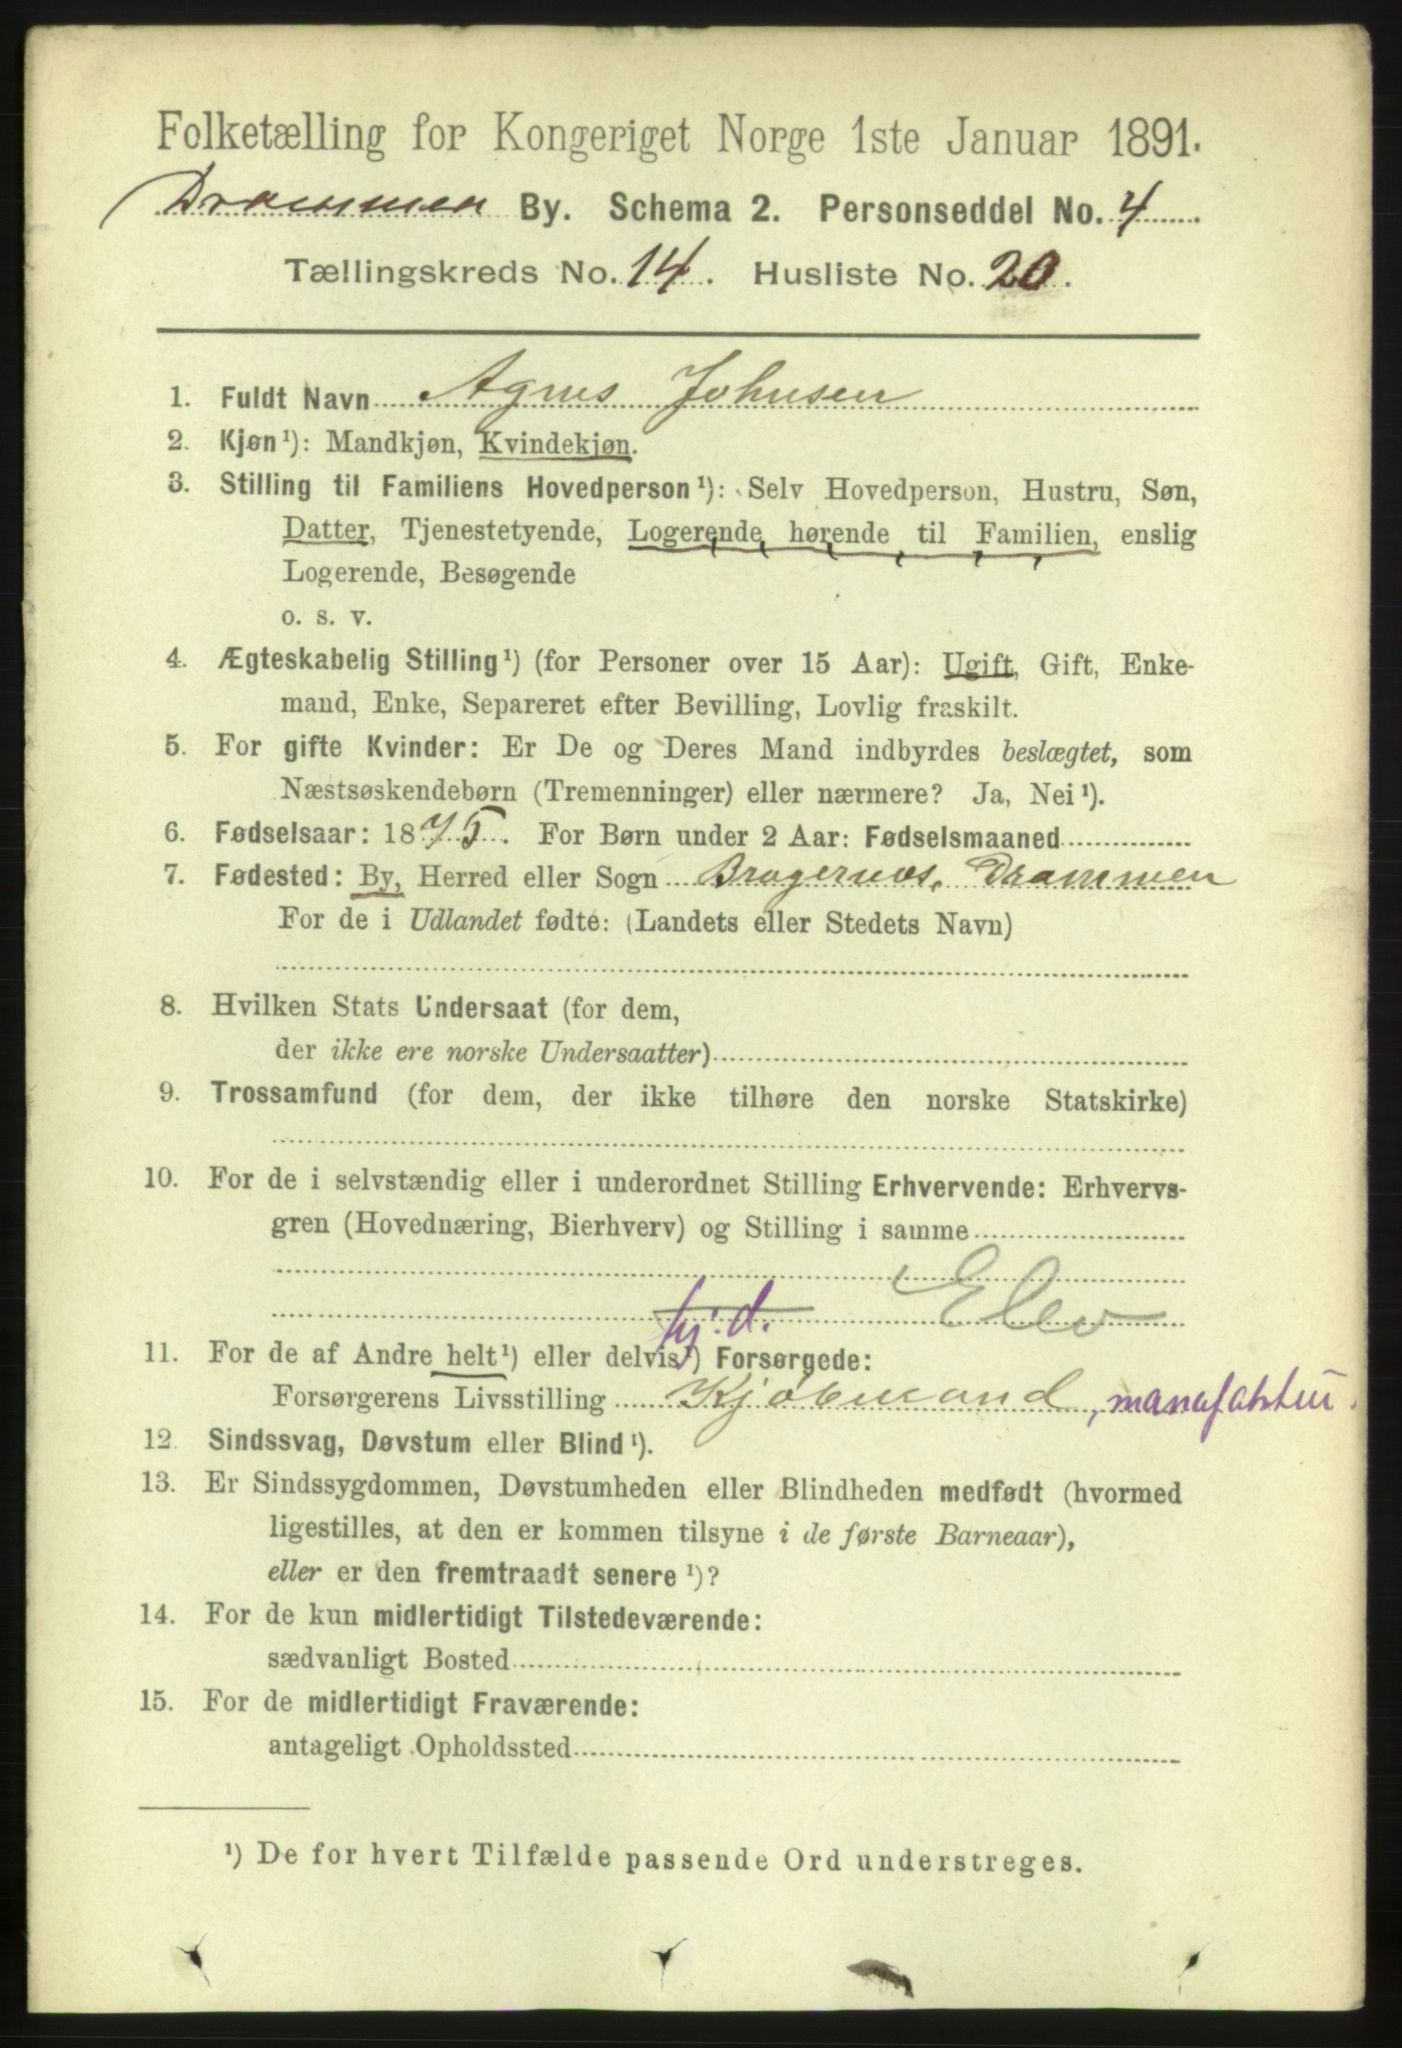 Folketælling for Kongeriget Norge 1ste Januar 1891.
Drammen By. Schema 2. Personseddel No. 4
Tællingskreds No. 14. Husliste No. 20.
1. Fuldt Navn Agnes Johnsen
2. Kjøn¹): Mandkjøn, Kvindekjøn.
3. Stilling til Familiens Hovedperson¹): Selv Hovedperson, Hustru, Søn,
Datter, Tjenestetyende, Logerende hørende til Familien, enslig
Logerende, Besøgende
o. s. v.
4. Ægteskabelig Stilling¹) (for Personer over 15 Aar): Ugift, Gift, Enke-
mand, Enke, Separeret efter Bevilling, Lovlig fraskilt.
5. For gifte Kvinder: Er De og Deres Mand indbyrdes beslægtet, som
Næstsøskendebørn (Tremenninger) eller nærmere? Ja, Nei¹).
6. Fødselsaar: 1875. For Børn under 2 Aar: Fødselsmaaned
7. Fødested: By, Herred eller Sogn Bragernæs, Drammen
For de i Udlandet fødte: (Landets eller Stedets Navn)
8. Hvilken Stats Undersaat (for dem,
der ikke ere norske Undersaatter)
9. Trossamfund (for dem, der ikke tilhøre den norske Statskirke)
10. For de i selvstændig eller i underordnet Stilling Erhvervende: Erhvervs-
gren (Hovednæring, Bierhverv) og Stilling i samme
hj. d. Elev
11. For de af Andre helt¹) eller delvis¹) Forsørgede:
Forsørgerens Livsstilling Kjøbmand, manufaktur.
12. Sindssvag, Døvstum eller Blind¹).
13. Er Sindssygdommen, Døvstumheden eller Blindheden medfødt (hvormed
ligestilles, at den er kommen tilsyne i de første Barneaar),
eller er den fremtraadt senere¹)?
14. For de kun midlertidigt Tilstedeværende:
sædvanligt Bosted
15. For de midlertidigt Fraværende:
antageligt Opholdssted
¹) De for hvert Tilfælde passende Ord understreges.